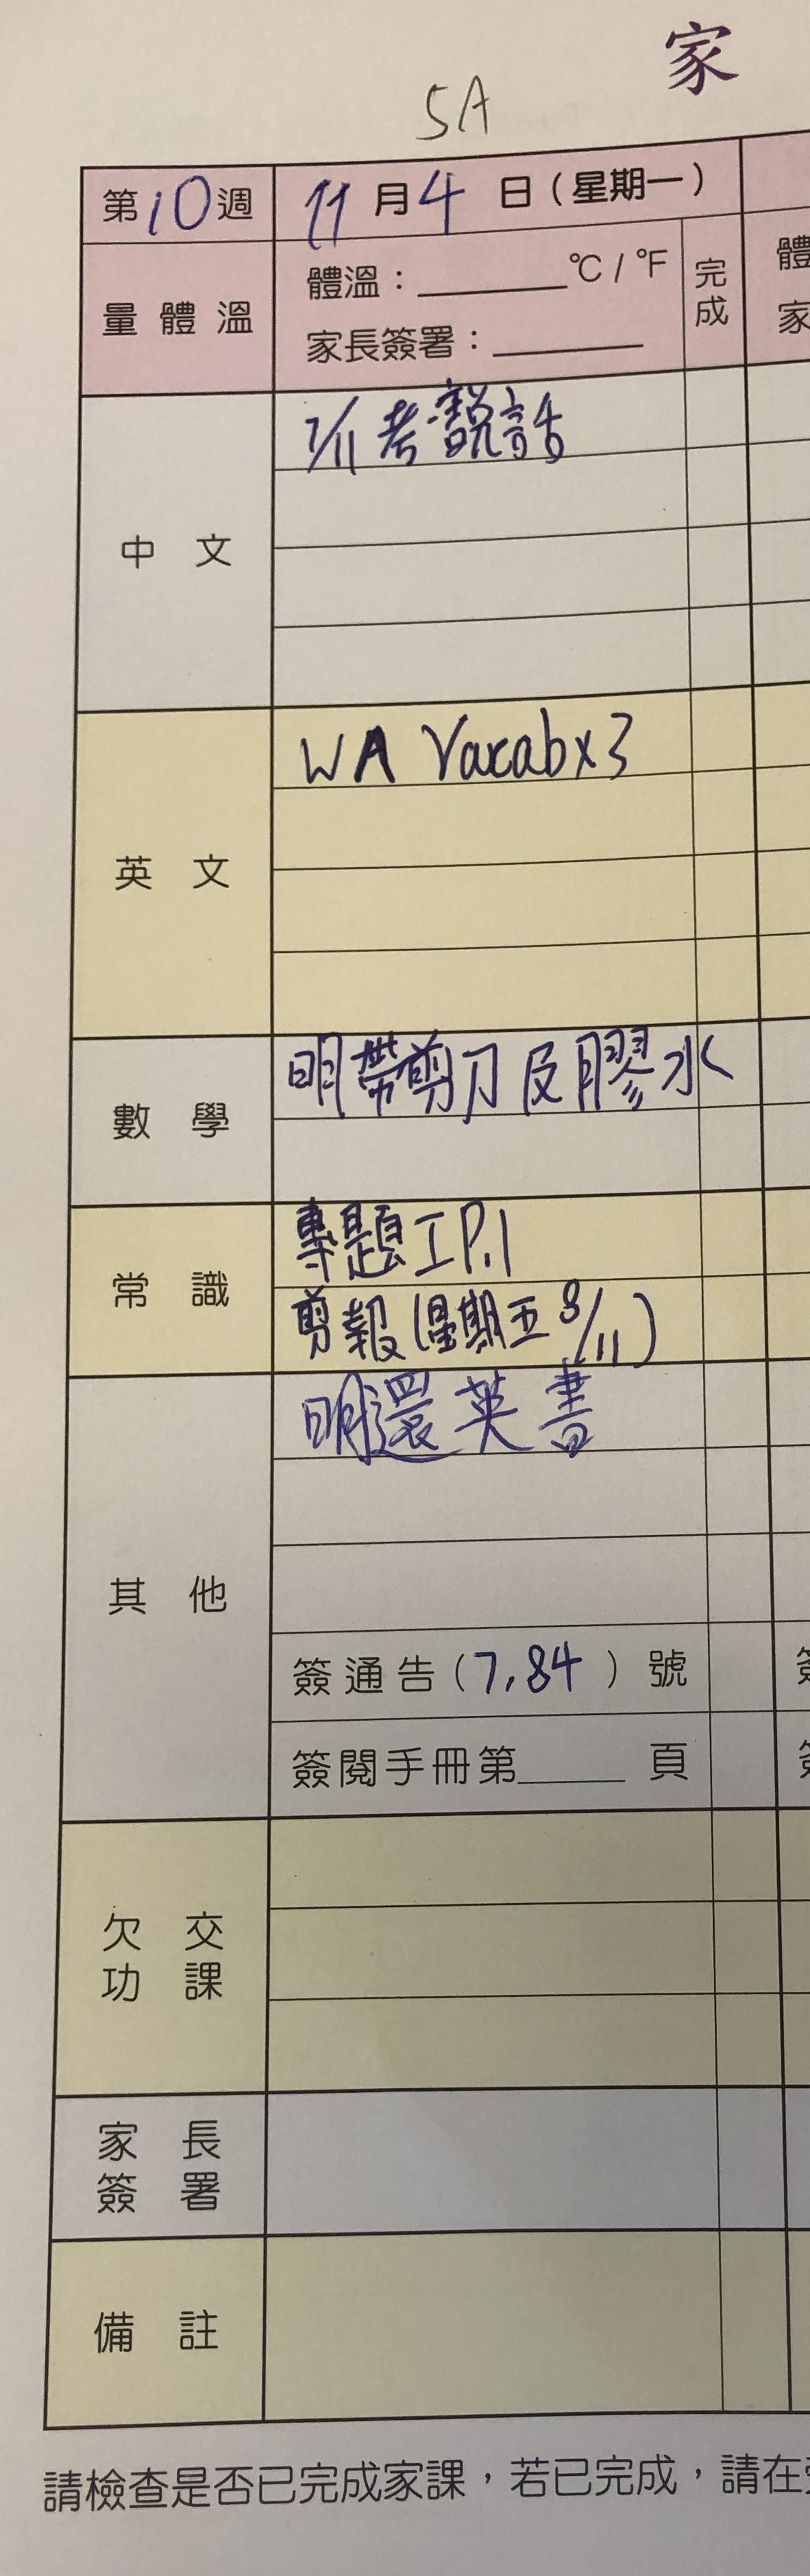 家
5A
第10週 11月4日(星期一)
量體溫 體溫：______°C / °F 完成
家長簽署：______
體
家
中文 7/11 考說話
英文 WA Vacabx3
數學 明帶剪刀及膠水
常識 專題 I P.1
剪報(星期五 8/11)
其他 明還英書
簽通告(7,84)號
簽閱手冊第____頁
欠交功課
家長簽署
備註
請檢查是否已完成家課，若已完成，請在